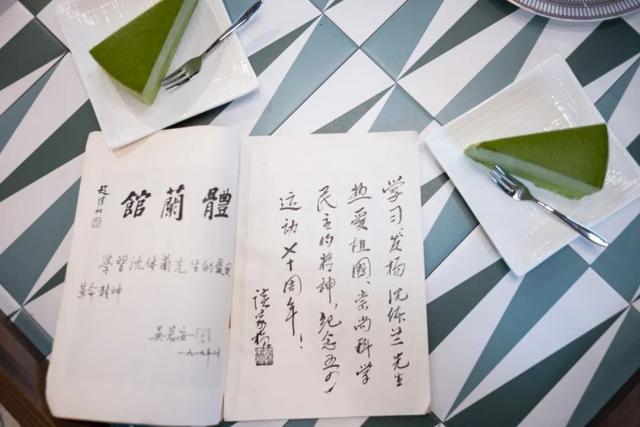 體蘭館
趙樸初
學習沈体蘭先生的爱国
革命精神
吴若安
一九八九年
学习发扬沈体兰先生
热爱祖国、崇尚科学
民主的精神，纪念五四
运动七十周年！
谈家桢